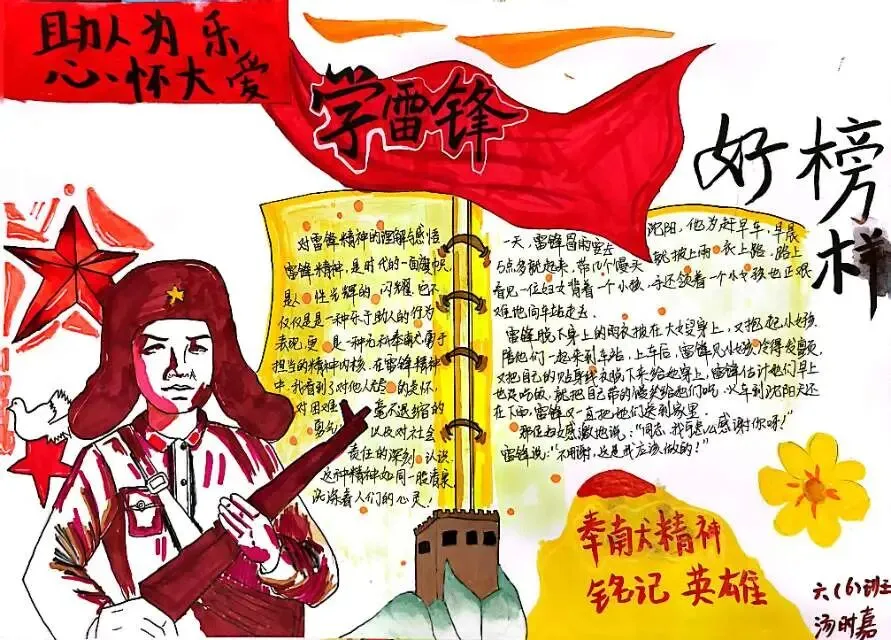 助人为乐
心怀大爱
学雷锋
好榜样
对雷锋精神的理解与感悟
雷锋精神，是时代的一面旗帜
是人性光辉的闪耀。它不
仅仅是是一种乐于助人的行为
表现，更是一种无私奉献、勇于
担当的精神内核。在雷锋精神
中，我看到了对他人的关怀，
对困难毫不退缩的
勇气，以及对社会
责任的深刻认识
这种精神如同一股清泉，
洗涤着人们的心灵！
一天，雷锋冒雨要去沈阳，他为赶早车，早晨
5点多就起来，带几个馒头就披上雨衣上路，路上
看见一位妇女背着一个小孩，手还领着一个小女孩也正艰
难地向车站走去。
雷锋脱下身上的雨衣披在大嫂身上，又抱起小女孩
陪他们一起来到车站，上车后，雷锋见小女孩冷得发颤，
又把自己的贴身线衣脱下来给她穿上，雷锋估计她们早上
也没吃饭，就把自己带的馒头给她们吃。火车到沈阳天还
在下雨，雷锋又一直把她们送到家里。
那位妇女感激地说：“同志，我怎么感谢你呀！”
雷锋说：“不用谢，这是我应该做的！”
奉献精神
铭记英雄
六（6）班
汤时嘉